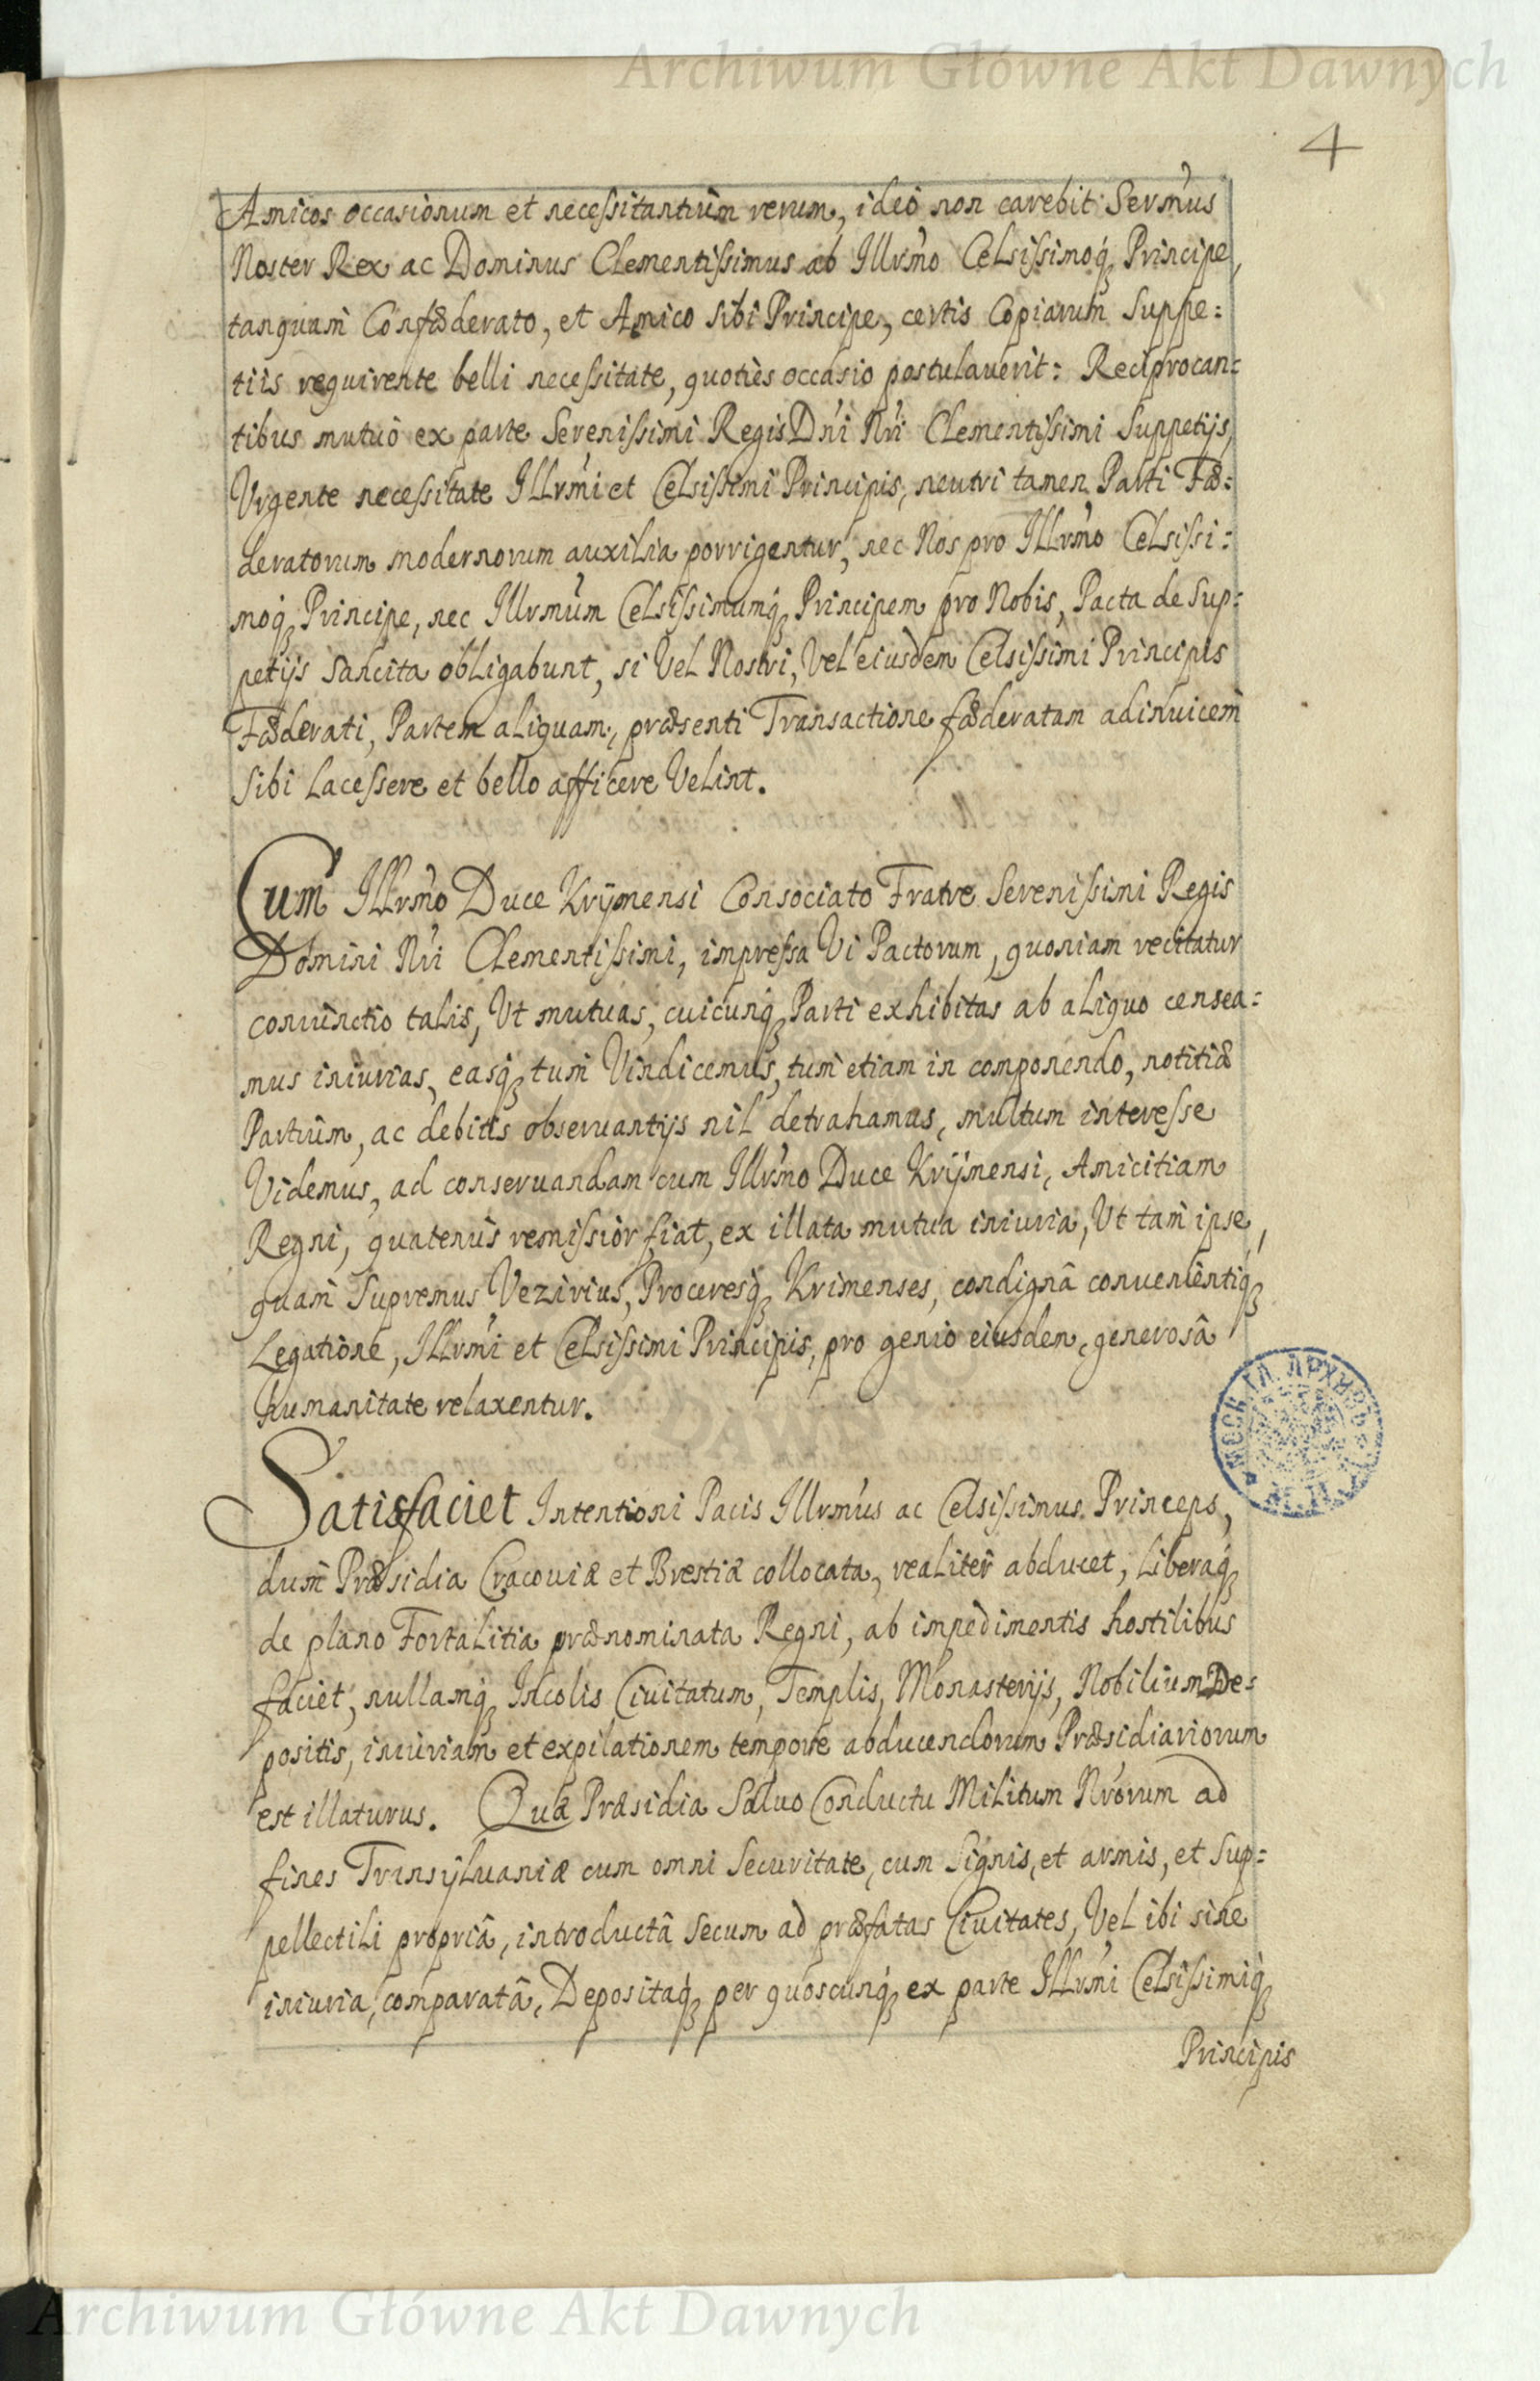 Archiwum Główne Akt Dawnych
4
Amicos occasionum et necessitantium rerum, ideo non carebit Serm̃us
Noster Rex ac Dominus Clementissimus ab Illrm̃o Celsissimoq́ꝫ Principe,
tanquam Confæderato, et Amico sibi Principe, certis Copiarum Suppe=
tiis requirente belli necessitate, quotiès occasio postulauerit: Reciprocan=
tibus mutuò ex parte Serenissimi Regis Dñi Nr̃i Clementissimi Suppetijs,
Vrgente necessitate Illrm̃i et Celsissimi Principis, neutri tamen Parti Fæ=
deratorum modernorum auxilia porrigentur, nec Nos pro Illrm̃o Celsissi=
moq́ꝫ Principe, nec Illrmũm Celsissimumq́ꝫ Principem pro Nobis, Pacta de Sup=
petijs Sancita obligabunt, si Vel Nostri, Vel eiusdem Celsissimi Principis
Fæderati, Partem aliquam, præsenti Transactione fæderatam adinuicem
Sibi Lacessere et bello afficere Velint.
Cum Illrm̃o Duce Krijmensi Consociato Fratre Serenissimi Regis
Domini Nr̃i Clementissimi, impressa Vi Pactorum, quoniam recitatur
coniunctio talis, Vt mutuas, cuicunq́ꝫ Parti exhibitas ab aliquo censea=
mus iniurias, easq́ꝫ tum Vindicemus, tum etiam in componendo, notitiæ
Partium, ac debitis obseruantijs nil detrahamus, multum interesse
Videmus, ad conseruandam cum Illrm̃o Duce Krijmensi, Amicitiam
Regni, quatenus remissior fiat, ex illata mutua iniuria, Vt tam ipse,
quam Supremus Vezirius, Proceresq́ꝫ Krimenses, condignâ conuenientiq́ꝫ
Legatione, Illrm̃i et Celsissimi Principis, pro genio eiusdem, generosâ
humanitate relaxentur.
Satisfaciet Intentioni Pacis Illrm̃us ac Celsissimus Princeps,
dum Præsidia Cracouiæ et Brestiæ collocata, realiter abducet, Liberaq́ꝫ
de plano Fortalitia prænominata Regni, ab impedimentis hostilibus
faciet, nullamq́ꝫ Incolis Ciuitatum, Templis, Monasterijs, Nobilium De=
positis, iniuriam et expilationem tempore abducendorum Præsidiariorum
est illaturus. Quæ Præsidia Saluo Conductu Militum Nr̃orum ad
fines Transyluaniæ cum omni Securitate, cum Signis, et armis, et Sup=
pellectili propriâ, introductâ Secum ad præfatas Ciuitates, Vel ibi sine
iniuria, comparatâ, Depositaq́ꝫ per quoscunq́ꝫ ex parte Illrm̃i Celsissimiq́ꝫ
Principis
Archiwum Główne Akt Dawnych